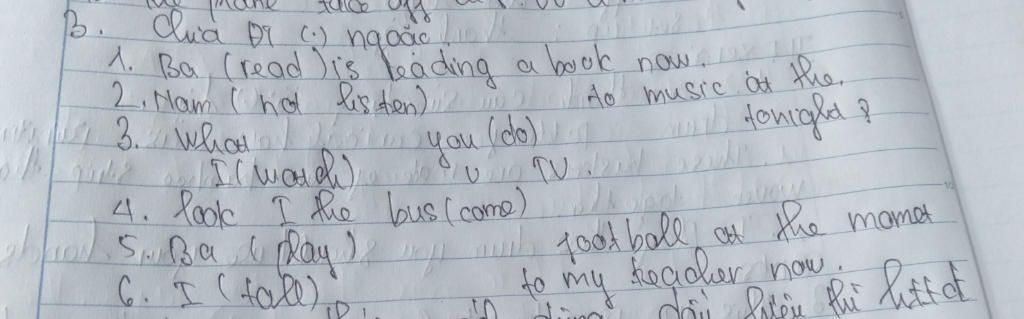 the plane take off
B. Chia ĐT (.) ngoặc.
1. Ba (read) is reading a book now.
2. Nam (not listen) to music at the.
3. What you (do) tonight?
I (watch) TV.
4. look I the bus (come)
5. Ba (play) football at the momet
6. I (talk) to my teacher now.
dấu hiệu thì httd